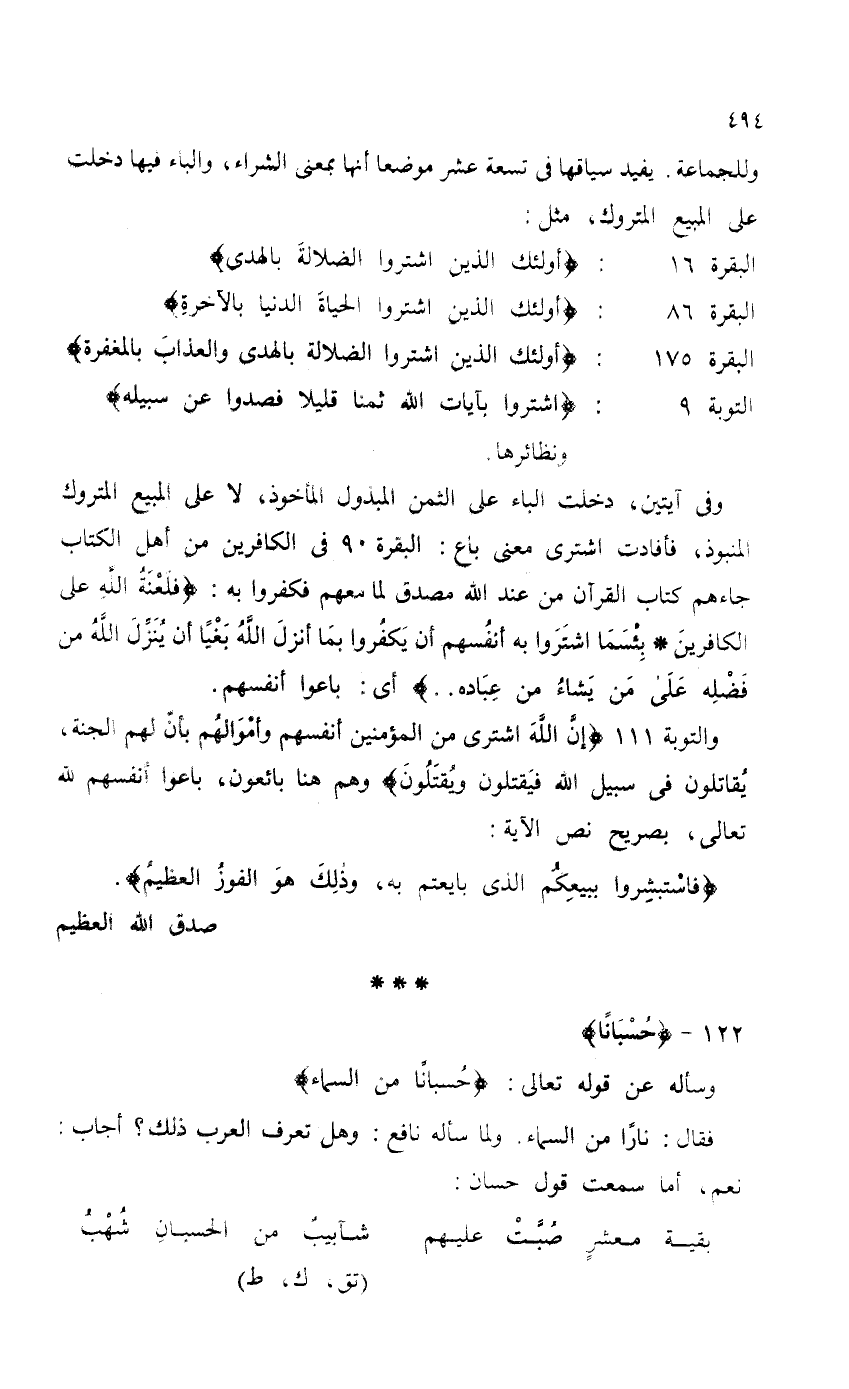 ٤٩٤
وللجماعة. يفيد سياقها فى تسعة عشر موضعا أنها بمعنى الشراء، والباء فيها دخلت
على المبيع المتروك، مثل:
البقرة ١٦ : ﴿أولئك الذين اشتروا الضلالةَ بالهدى﴾
البقرة ٨٦ : ﴿أولئك الذين اشتروا الحياةَ الدنيا بالآخرةِ﴾
البقرة ١٧٥ : ﴿أولئك الذين اشتروا الضلالة بالهدى والعذابَ بالمغفرة﴾
التوبة ٩ : ﴿اشتروا بآيات الله ثمنا قليلا فصدوا عن سبيله﴾
ونظائرها.
وفى آيتين، دخلت الباء على الثمن المبذول المأخوذ، لا على المبيع المتروك
المنبوذ، فأفادت اشترى معنى باع: البقرة ٩٠ فى الكافرين من أهل الكتاب
جاءهم كتاب القرآن من عند الله مصدق لما معهم فكفروا به: ﴿فلَعْنَةُ اللَّهِ على
الكافرينَ * بِئْسَمَا اشتَرَوا به أنفُسهم أن يَكفُروا بمَا أنزلَ اللَّهُ بَغْيًا أن يُنَزِّلَ اللَّهُ من
فَضْلِه عَلَىٰ مَن يَشاءُ من عِبَاده..﴾ أى: باعوا أنفسهم.
والتوبة ١١١ ﴿إنَّ اللَّهَ اشترى من المؤمنين أنفسهم وأمْوَالهُم بأنّ لهم الجنة،
يُقاتلون فى سبيل الله فيَقتلون ويُقتَلُونَ﴾ وهم هنا بائعون، باعوا أنفسهم لله
تعالى، بصريح نص الآية:
﴿فاسْتبشِروا ببيعِكُم الذى بايعتم به، وذٰلِكَ هوَ الفوزُ العظيمُ﴾.
صدق الله العظيم
* * *
١٢٢ - ﴿حُسْبَانًا﴾
وسأله عن قوله تعالى: ﴿حُسبانًا من السماء﴾
فقال: نارًا من السماء. ولما سأله نافع: وهل تعرف العرب ذلك؟ أجاب:
نعم، أما سمعت قول حسان:
بقيـة معـشرٍ صُبَّتْ عليـهم شـآبيبُ من الحسبـانِ شُهْبُ
(تق، ك، ط)